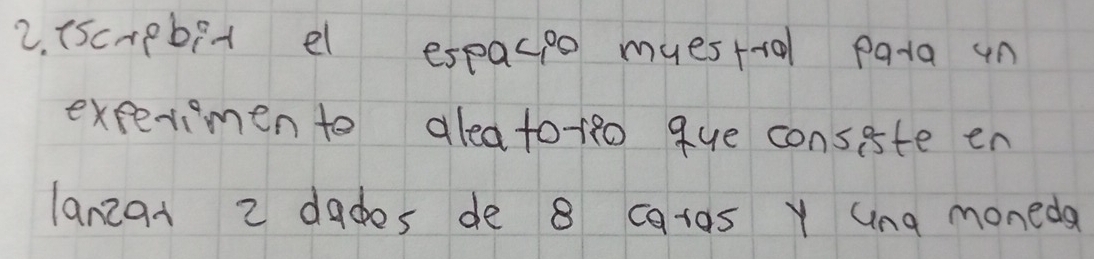 2. escribir el espacio muestral para un
experimento aleatorio que consiste en
lanzar 2 dados de 8 caras y una moneda